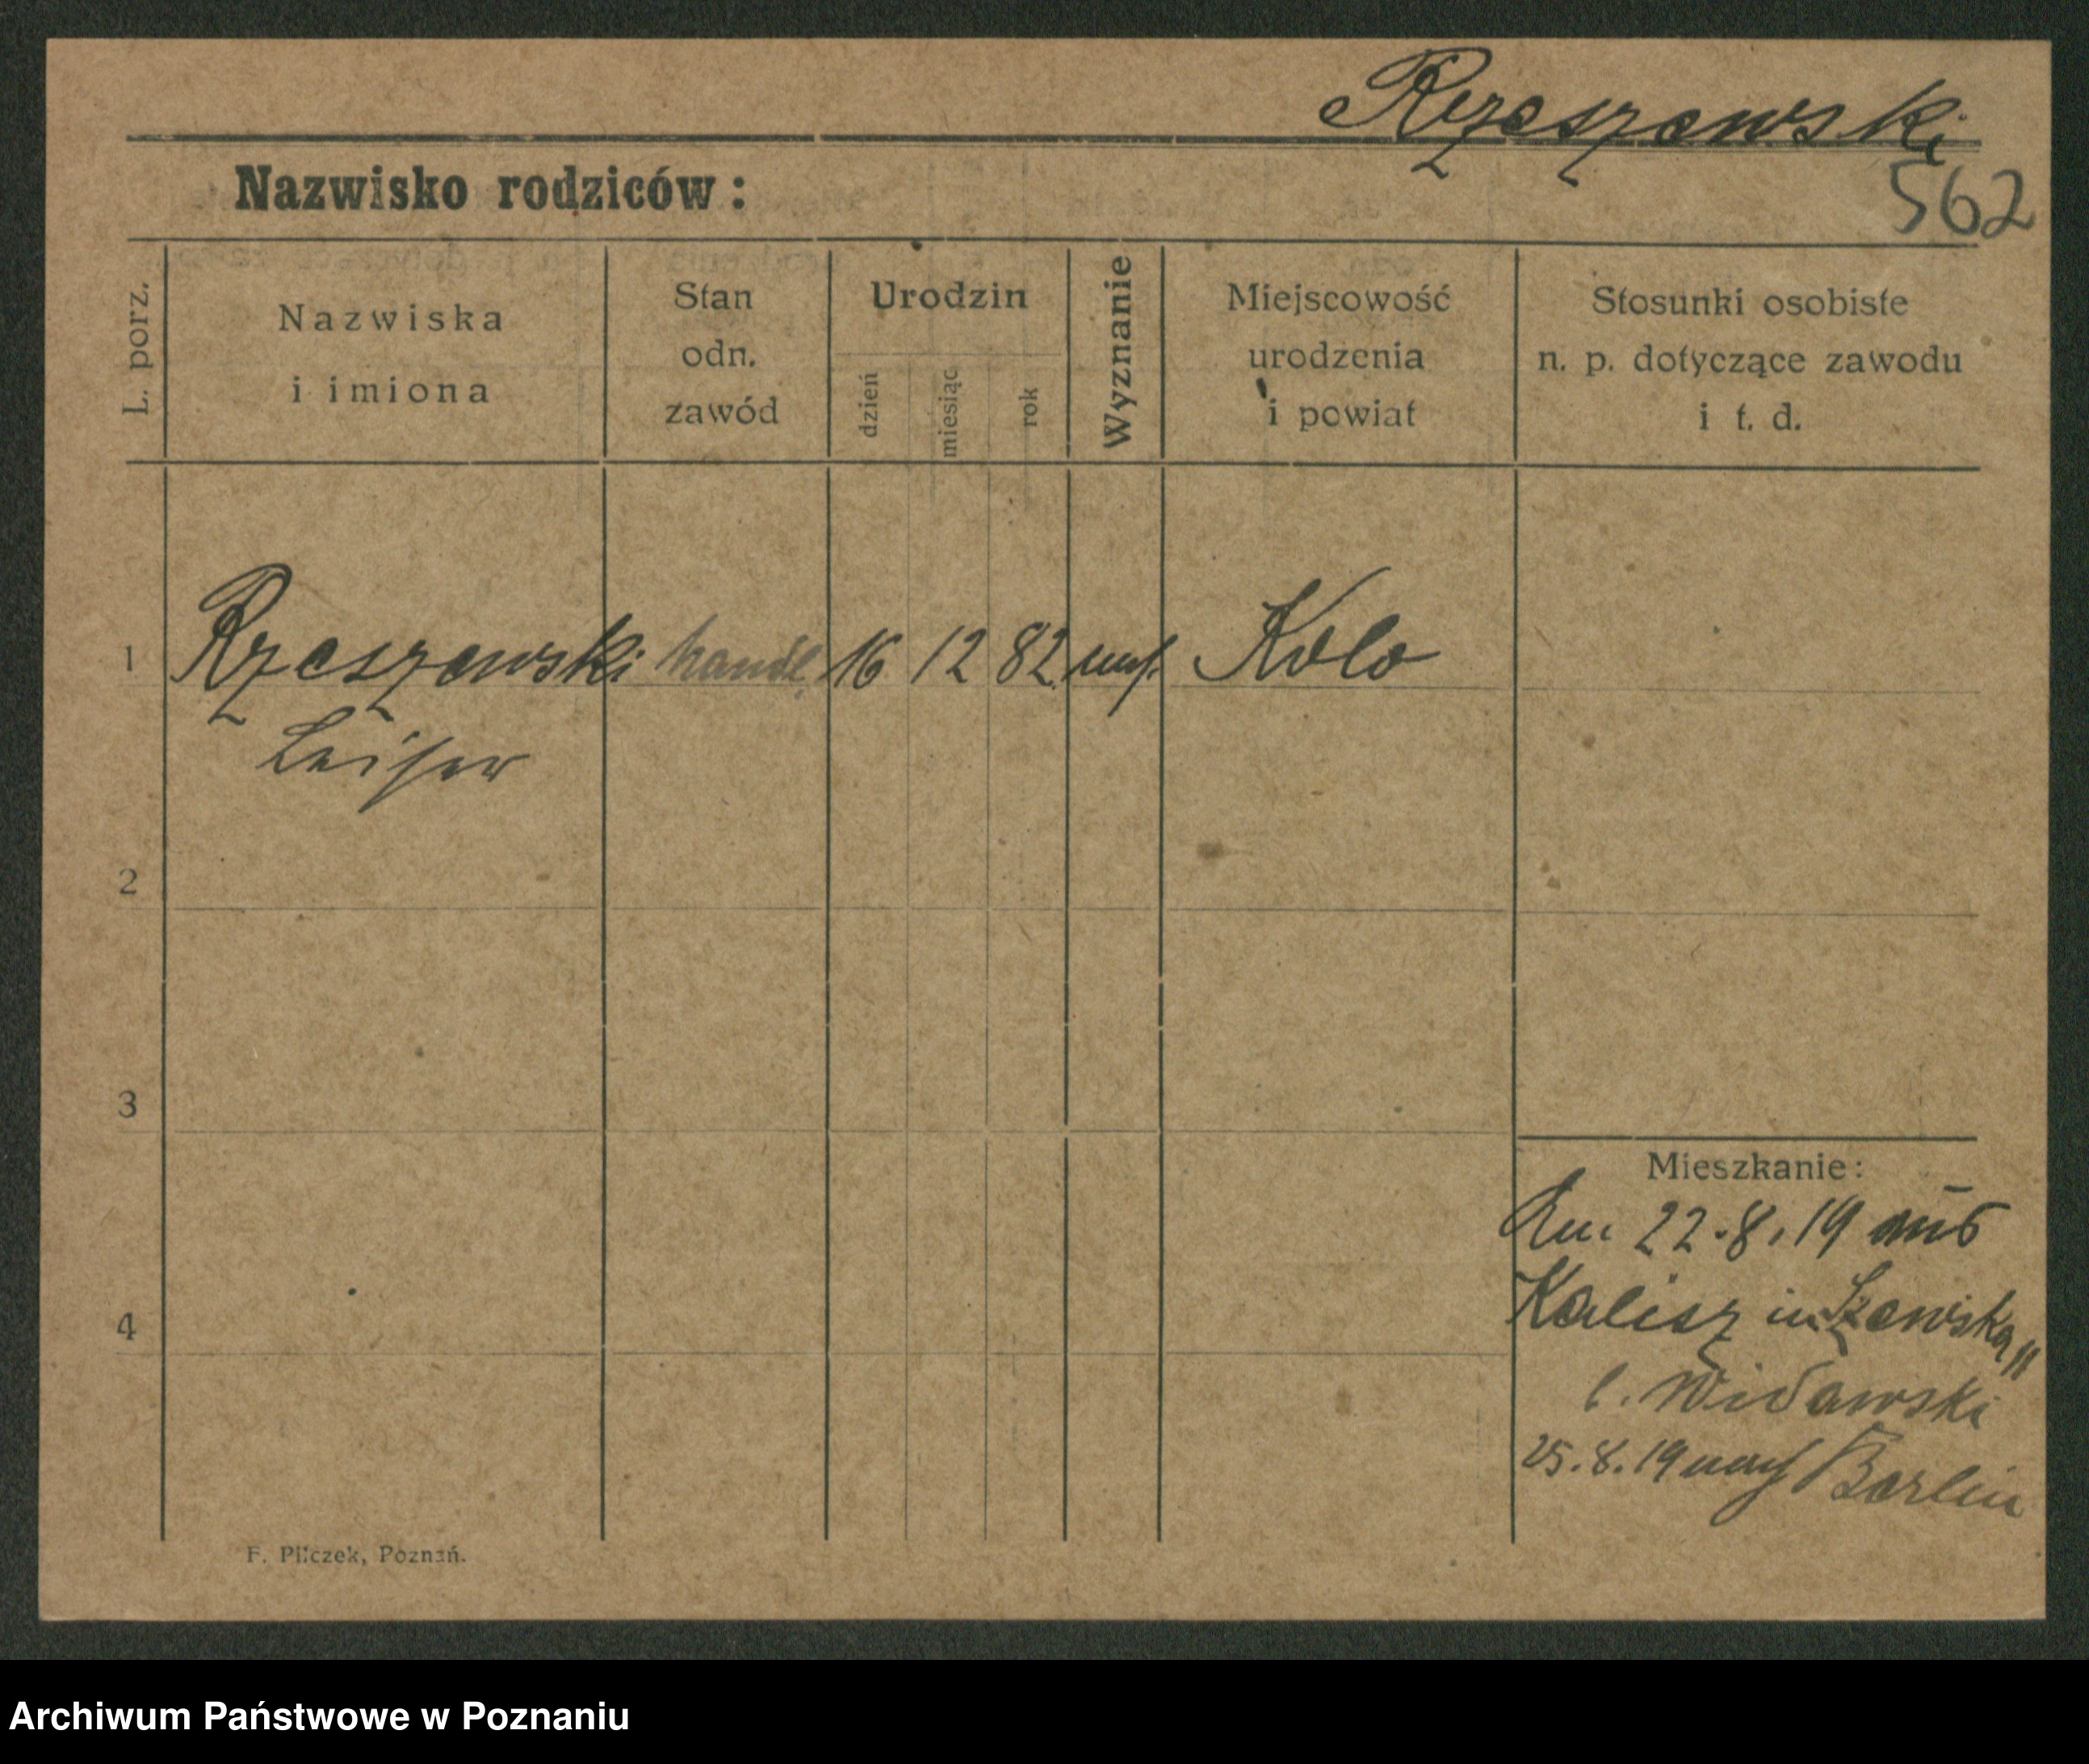 Rzeszewski
562
Nazwisko rodziców:
L. porz.
Nazwiska
i imiona
Stan
odn.
zawód
Urodzin
dzień
miesiąc
rok
Wyznanie
Miejscowość
urodzenia
i powiat
Stosunki osobiste
n. p. dotyczące zawodu
i t. d.
1 Rzeszewski handl. 16 12 82 Kolo
Leiser
2
3
4
Mieszkanie:
Am 22.8.19 aus
Kalisz in Szewska 11
b. Widawski
25.8.19 nach Berlin
F. Pilczek, Poznań.
Archiwum Państwowe w Poznaniu